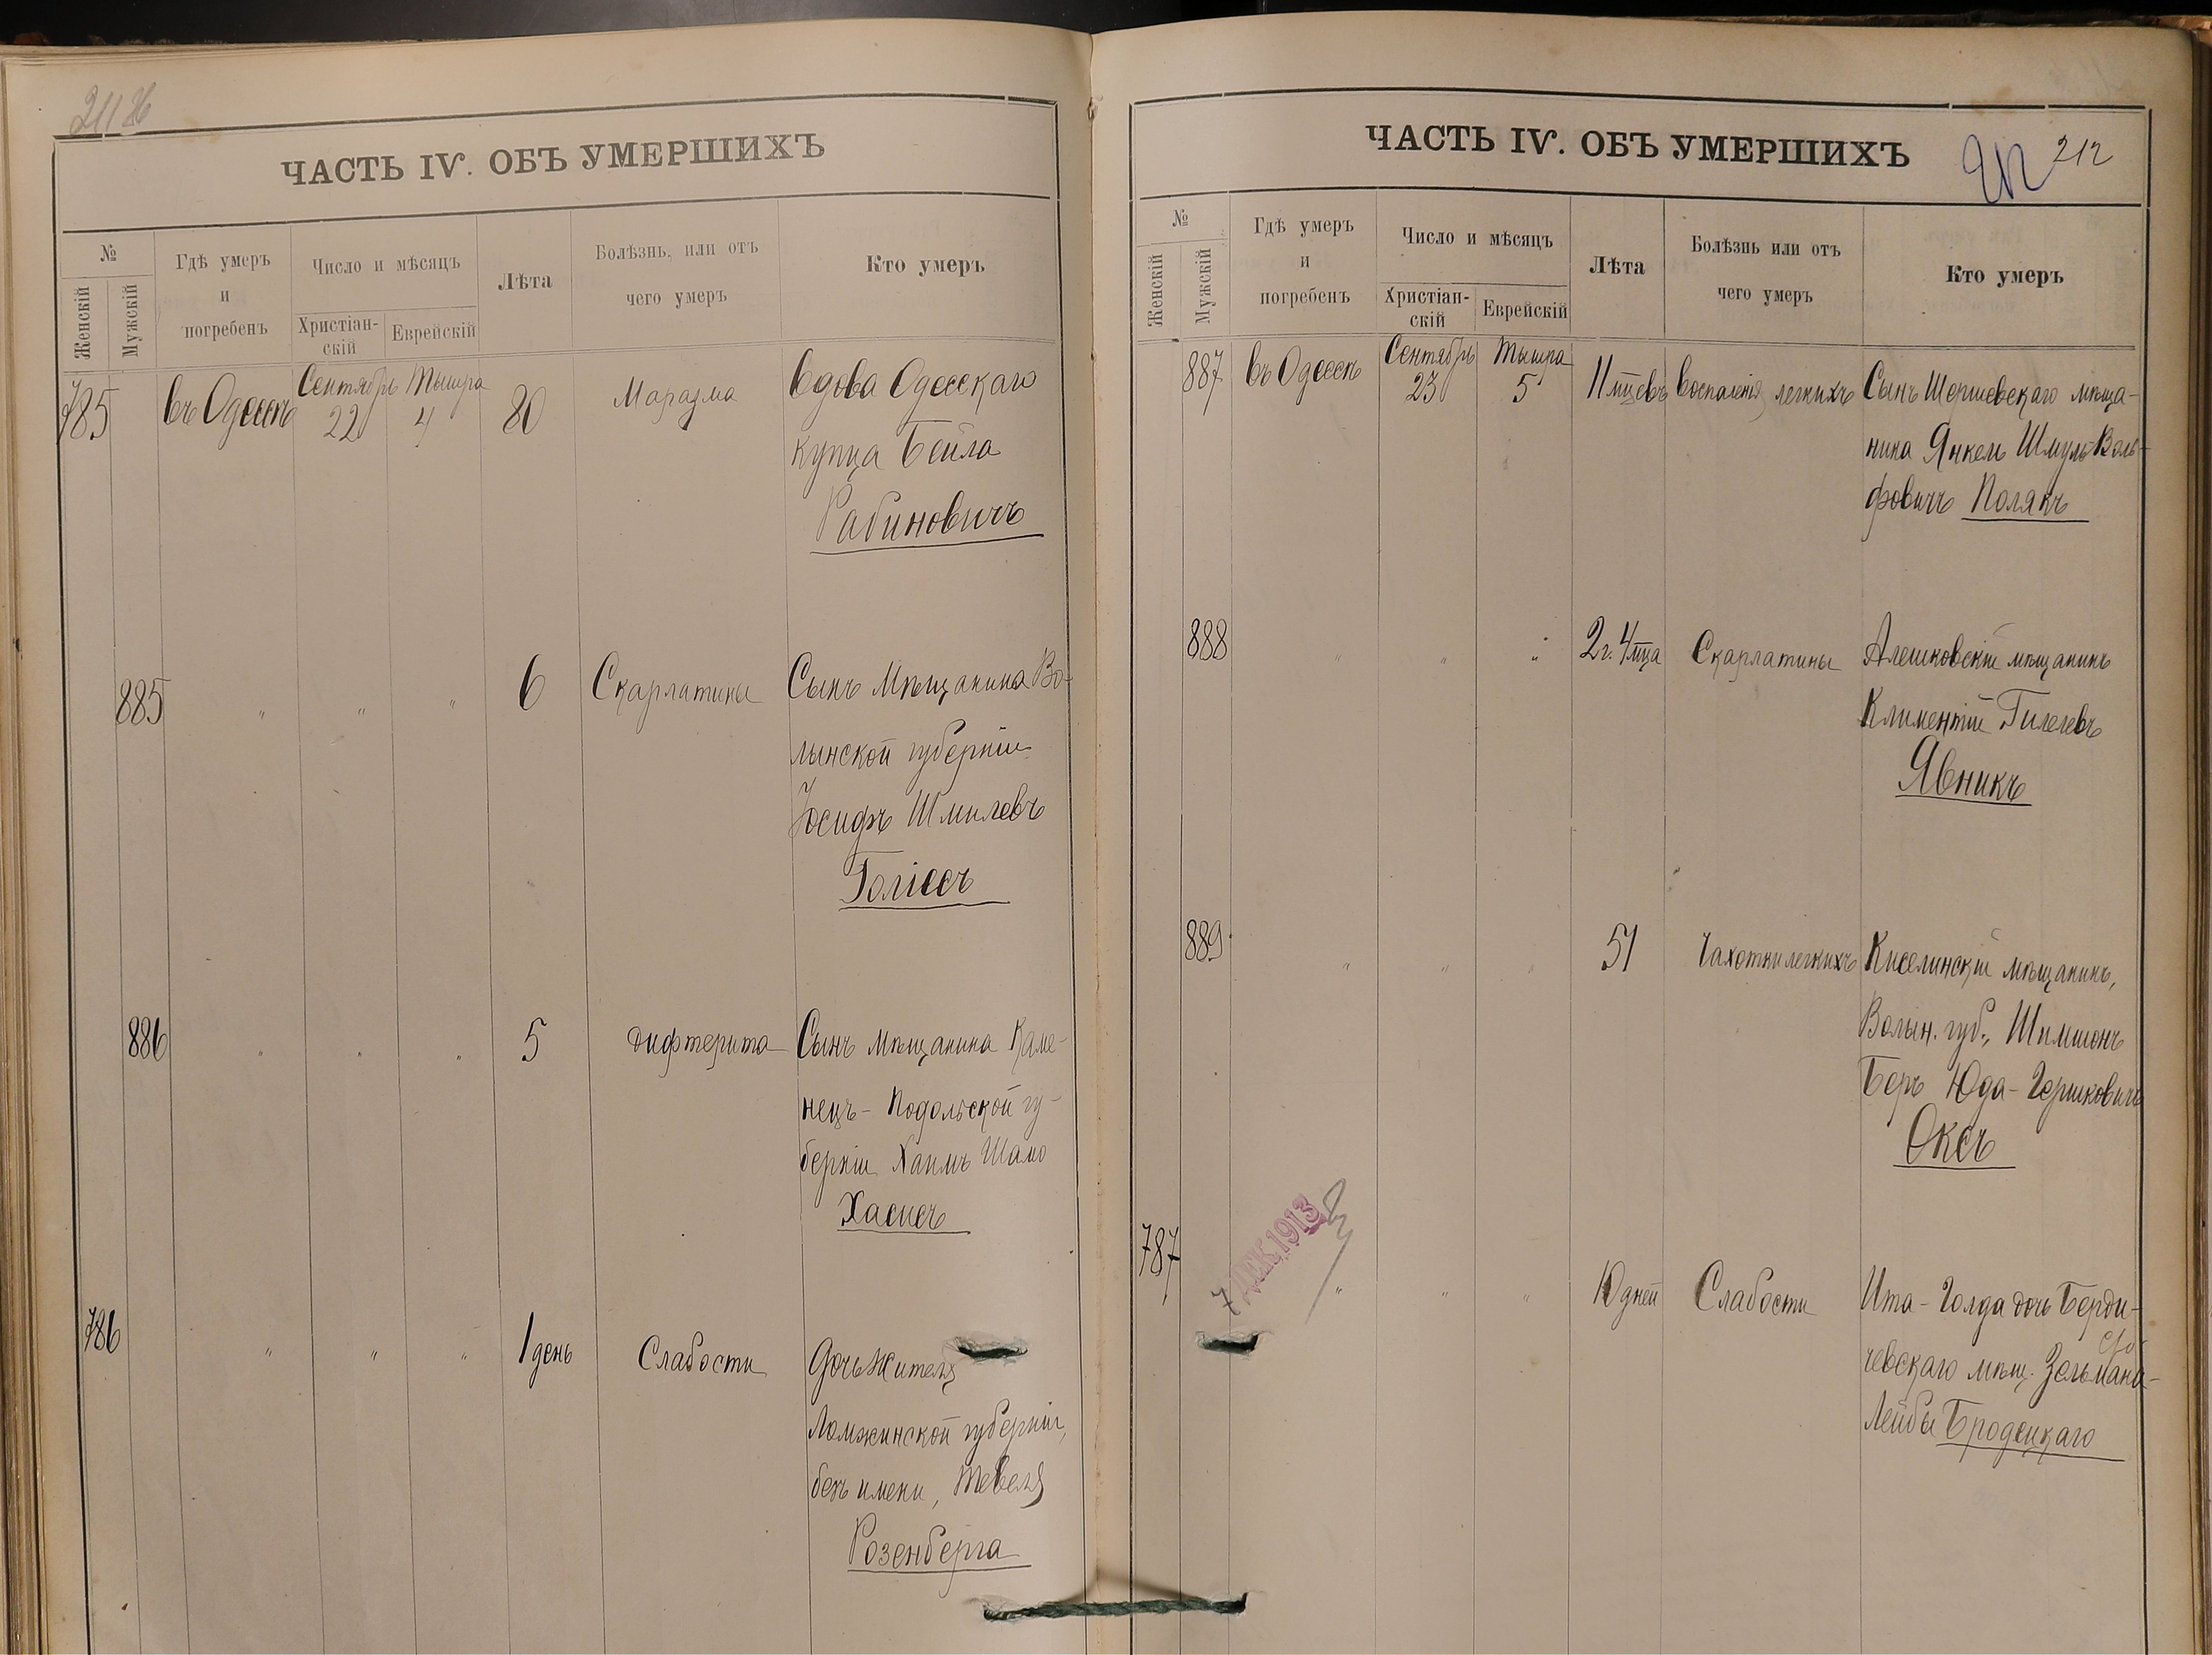 211
ЧАСТЬ IV. ОБЪ УМЕРШИХЪ
№
Женскій
Мужскій
Гдѣ умеръ
и
погребенъ
Число и мѣсяцъ
Христіан-
скій
Еврейскій
Лѣта
Болѣзнь, или отъ
чего умеръ
Кто умеръ
785 въ Одессѣ Сентябрь 22 Тышра 4 80 Маразма Вдова Одесскаго
купца Бейла
Рабиновичъ
885 " " " 6 Скарлатины Сынъ Мѣщанина Во-
лынской губерніи
Іосифъ Шмилевъ
Голіссъ
886 " " " 5 Дифтерита Сынъ мѣщанина Каме-
нецъ-Подольской гу-
берніи Хаимъ
Хасисъ
786 " " " 1 день Слабости Дочь Жителя
Ломжинской губерніи,
безъ имени, Тевеля
Розенберга
ЧАСТЬ IV. ОБЪ УМЕРШИХЪ
212
№
Женскій
Мужскій
Гдѣ умеръ
и
погребенъ
Число и мѣсяцъ
Христіан-
скій
Еврейскій
Лѣта
Болѣзнь или отъ
чего умеръ
Кто умеръ
887 въ Одессѣ Сентябрь 23 Тышра 5 11 мцевъ Воспаленія легкихъ Сынъ Шершевскаго мѣща-
нина Янкель Шмуль-Воль-
фовичъ Полякъ
888 " " " 2 г. 4 мца Скарлатины Алешковскій мѣщанинъ
Климентій Гилелевъ
Явникъ
889 " " " 51 Чахотки легкихъ Киселинскій мѣщанинъ,
Волын. губ., Шимшонъ
Беръ Юда-Гершковичъ
Оксъ
7 ДЕК. 1913
787 " " " 10 дней Слабости Ита-Голда дочь Берди-
чевскаго мѣщ. Зельмана-
Лейбы Бродецкаго